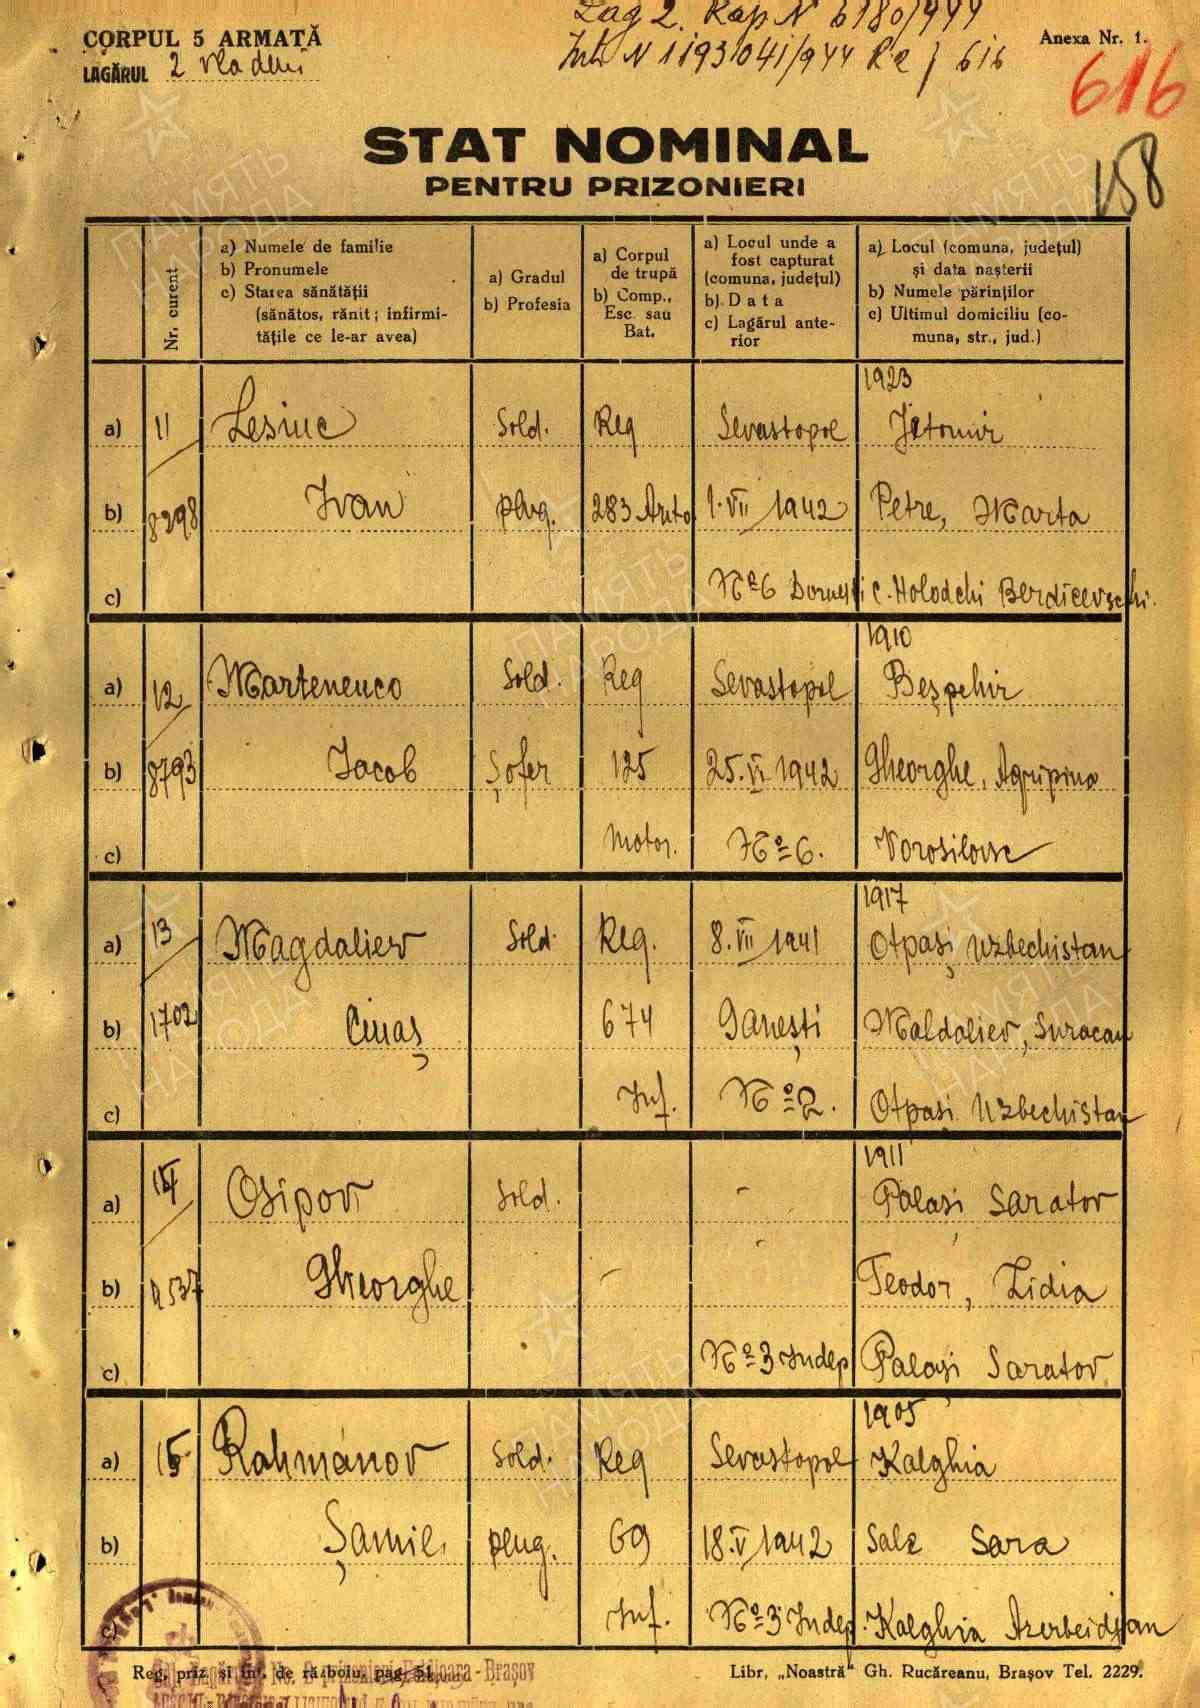 Lag 2. Rap N 6180/944
CORPUL 5 ARMATĂ
Anexa Nr. 1.
LAGĂRUL 2 Vladeni
616
616
STAT NOMINAL
158
PENTRU PRIZONIERI
Nr. curent
a) Numele de familie
b) Pronumele
c) Starea sănătății
(sănătos, rănit; infirmi-
tățile ce le-ar avea)
a) Gradul
b) Profesia
a) Corpul
de trupă
b) Comp.,
Esc. sau
Bat.
a) Locul unde a
fost capturat
(comuna, județul)
b) Data
c) Lagărul ante-
rior
a) Locul (comuna, județul)
și data nașterii
b) Numele părinților
c) Ultimul domiciliu (co-
muna, str., jud.)
1923
a) 11 Lesiuc Sold. Reg Sevastopol Jitomir
b) 8298 Ivan plug. 283 Auto 1.VII 1942 Petre, Marta
c) Nº 6 Dornești C. Holodchi Berdicevschi.
1910
a) 12 Martenenco Sold. Reg Sevastopol Beșpehir
b) 8793 Iacob Șofer 125 25.VI 1942 Gheorghe, Agripina
c) Motor. Nº 6. Vorosilovsc
1917
a) 13 Magdaliev Sold. Reg. 8.VII 1941 Otpași Uzbechistan
b) 1702 Cinaș 674 Ganești Maldaliev, Suracan
c) Inf. Nº 2. Otpași Uzbechistan
1911
a) 14 Osipov Sold. - Palași Saratov
b) Gheorghe Teodor, Lidia
c) Nº 3 Indep Palași Saratov
1905
a) 15 Rahmanov Sold. Reg Sevastopol Kalghia
b) Șamil. plug. 69 18.V 1942 Sale Sara
c) Inf. Nº 3 Indep. Kalghia Azerbeidjan
Reg. priz. și int. de războiu, pag. 51.
Libr. „Noastră“ Gh. Rucăreanu, Brașov Tel. 2229.
ПАМЯТЬ
НАРОДА